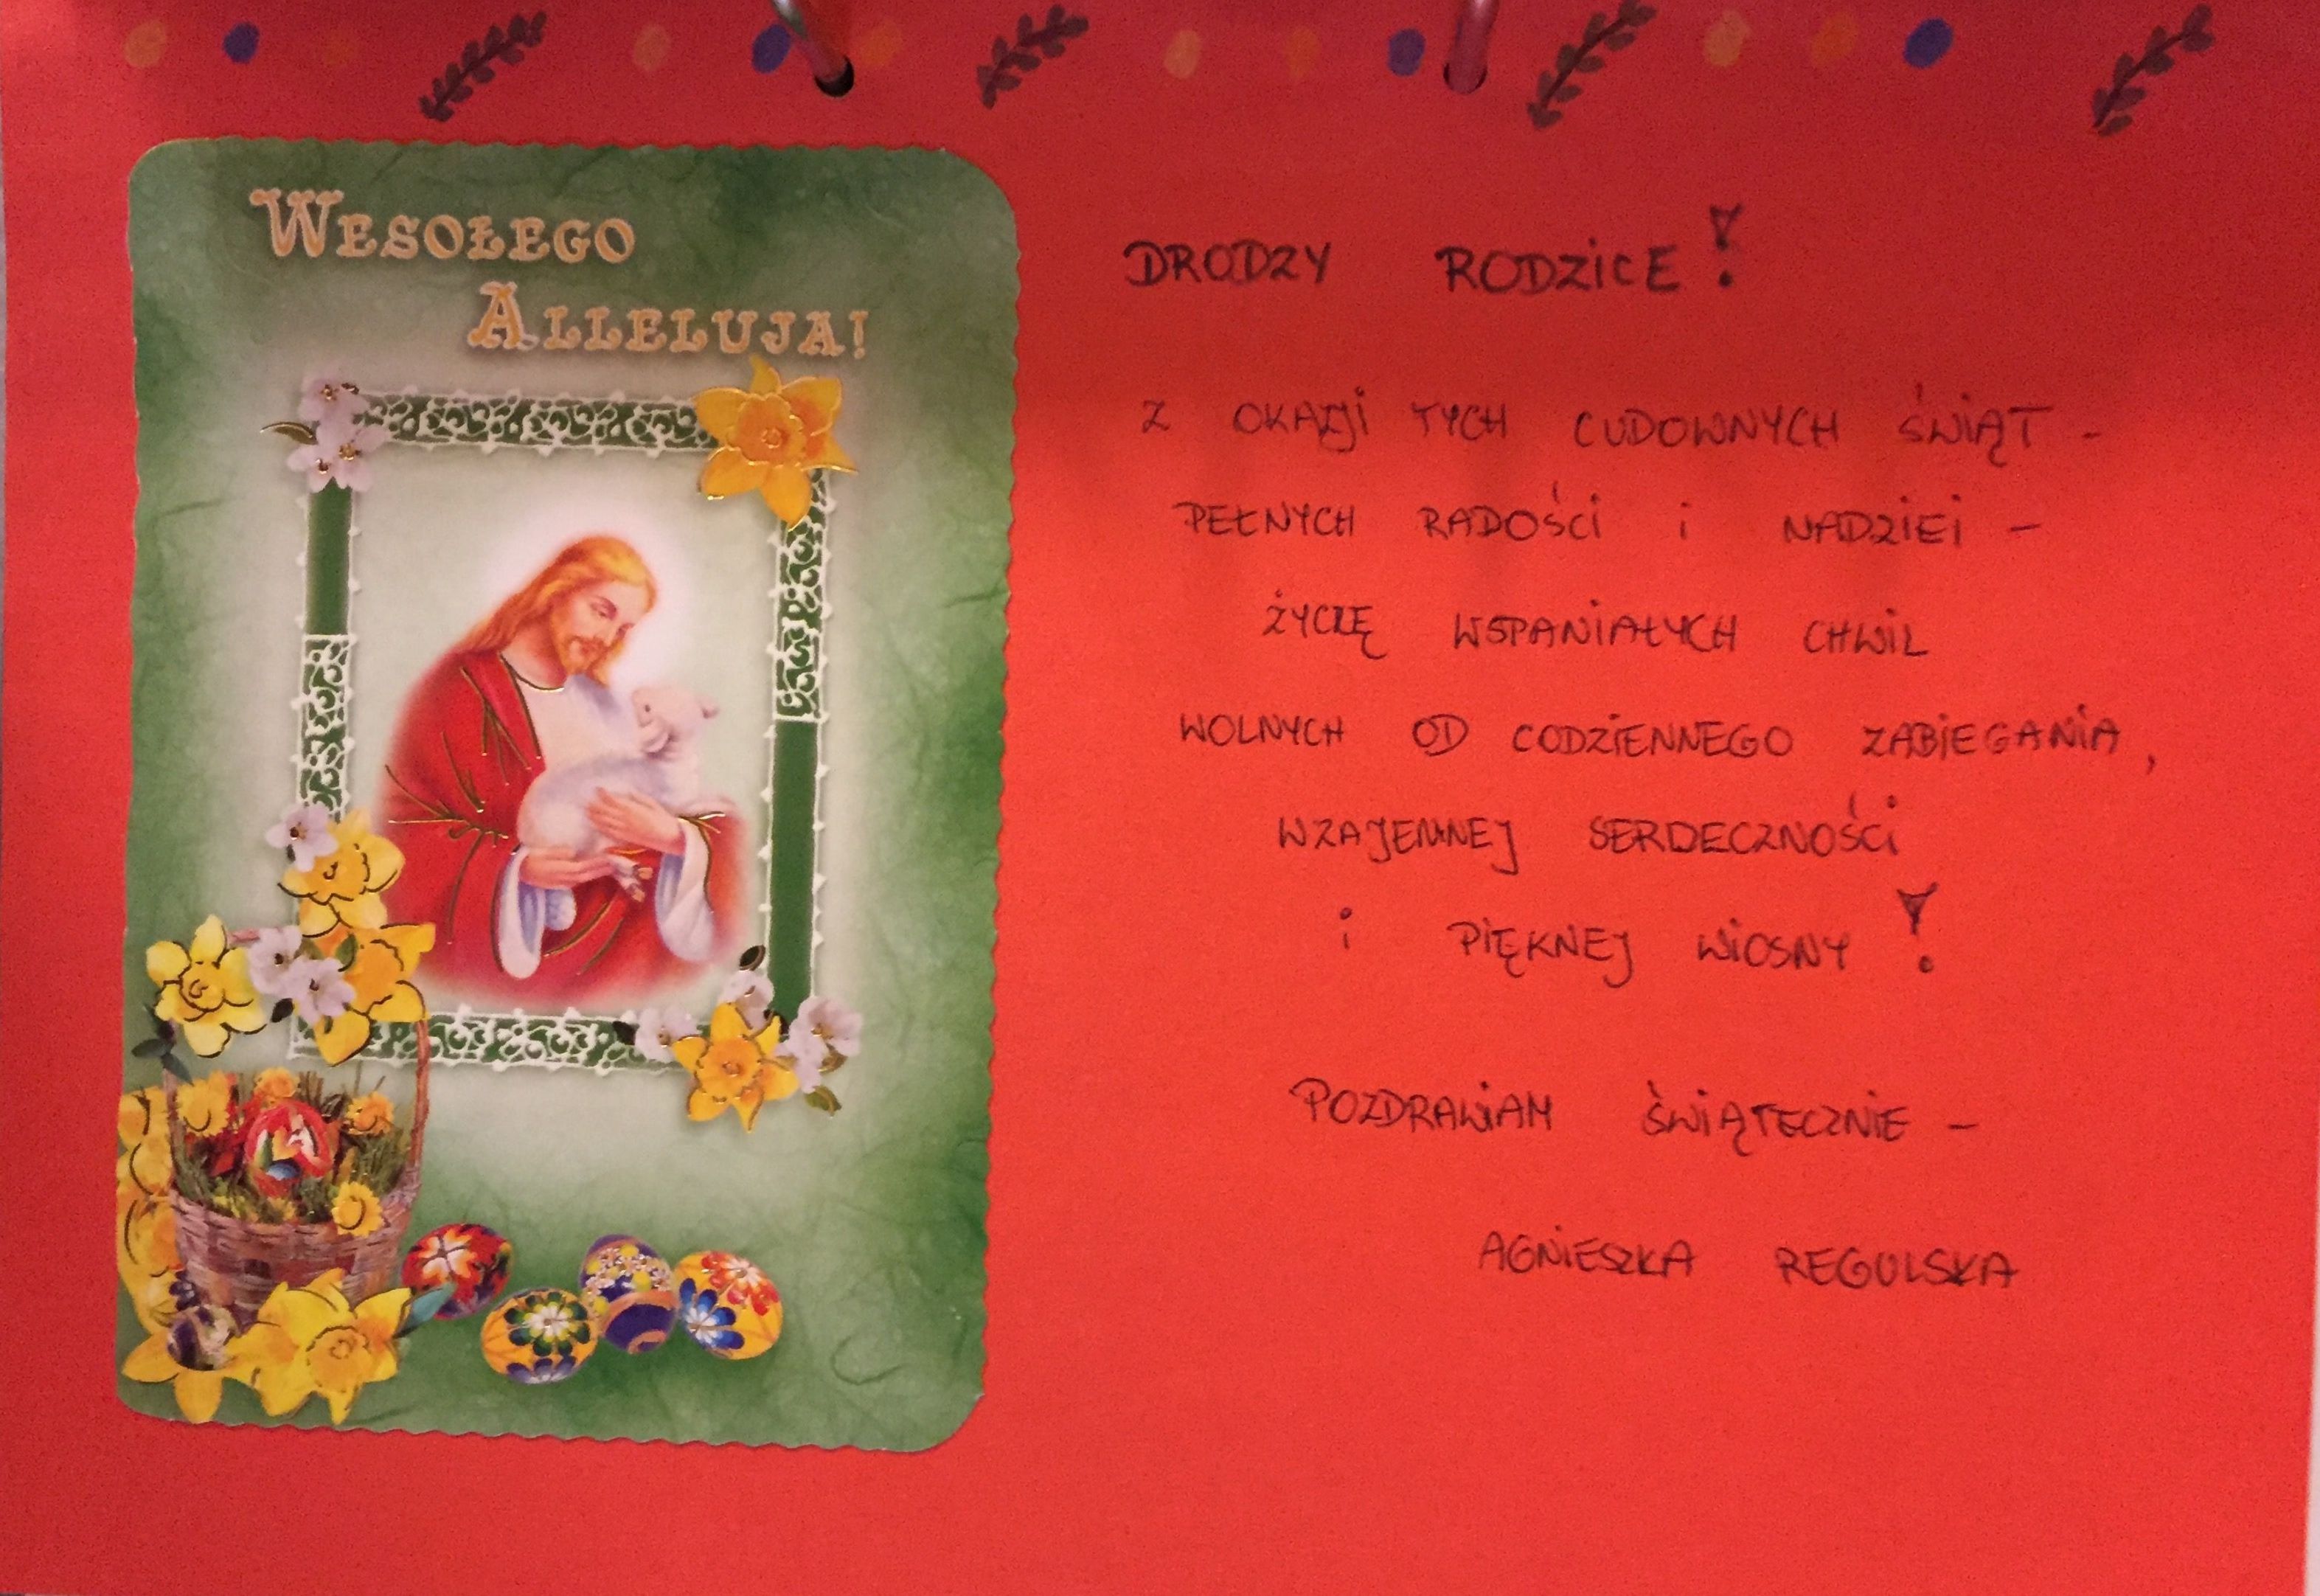 WESOŁEGO
ALLELUJA!
DRODZY RODZICE!
Z OKAZJI TYCH CUDOWNYCH ŚWIĄT -
PEŁNYCH RADOŚCI i NADZIEI -
ŻYCZĘ WSPANIAŁYCH CHWIL
WOLNYCH OD CODZIENNEGO ZABIEGANIA,
WZAJEMNEJ SERDECZNOŚCI
i PIĘKNEJ WIOSNY!
POZDRAWIAM ŚWIĄTECZNIE -
AGNIESZKA REGULSKA